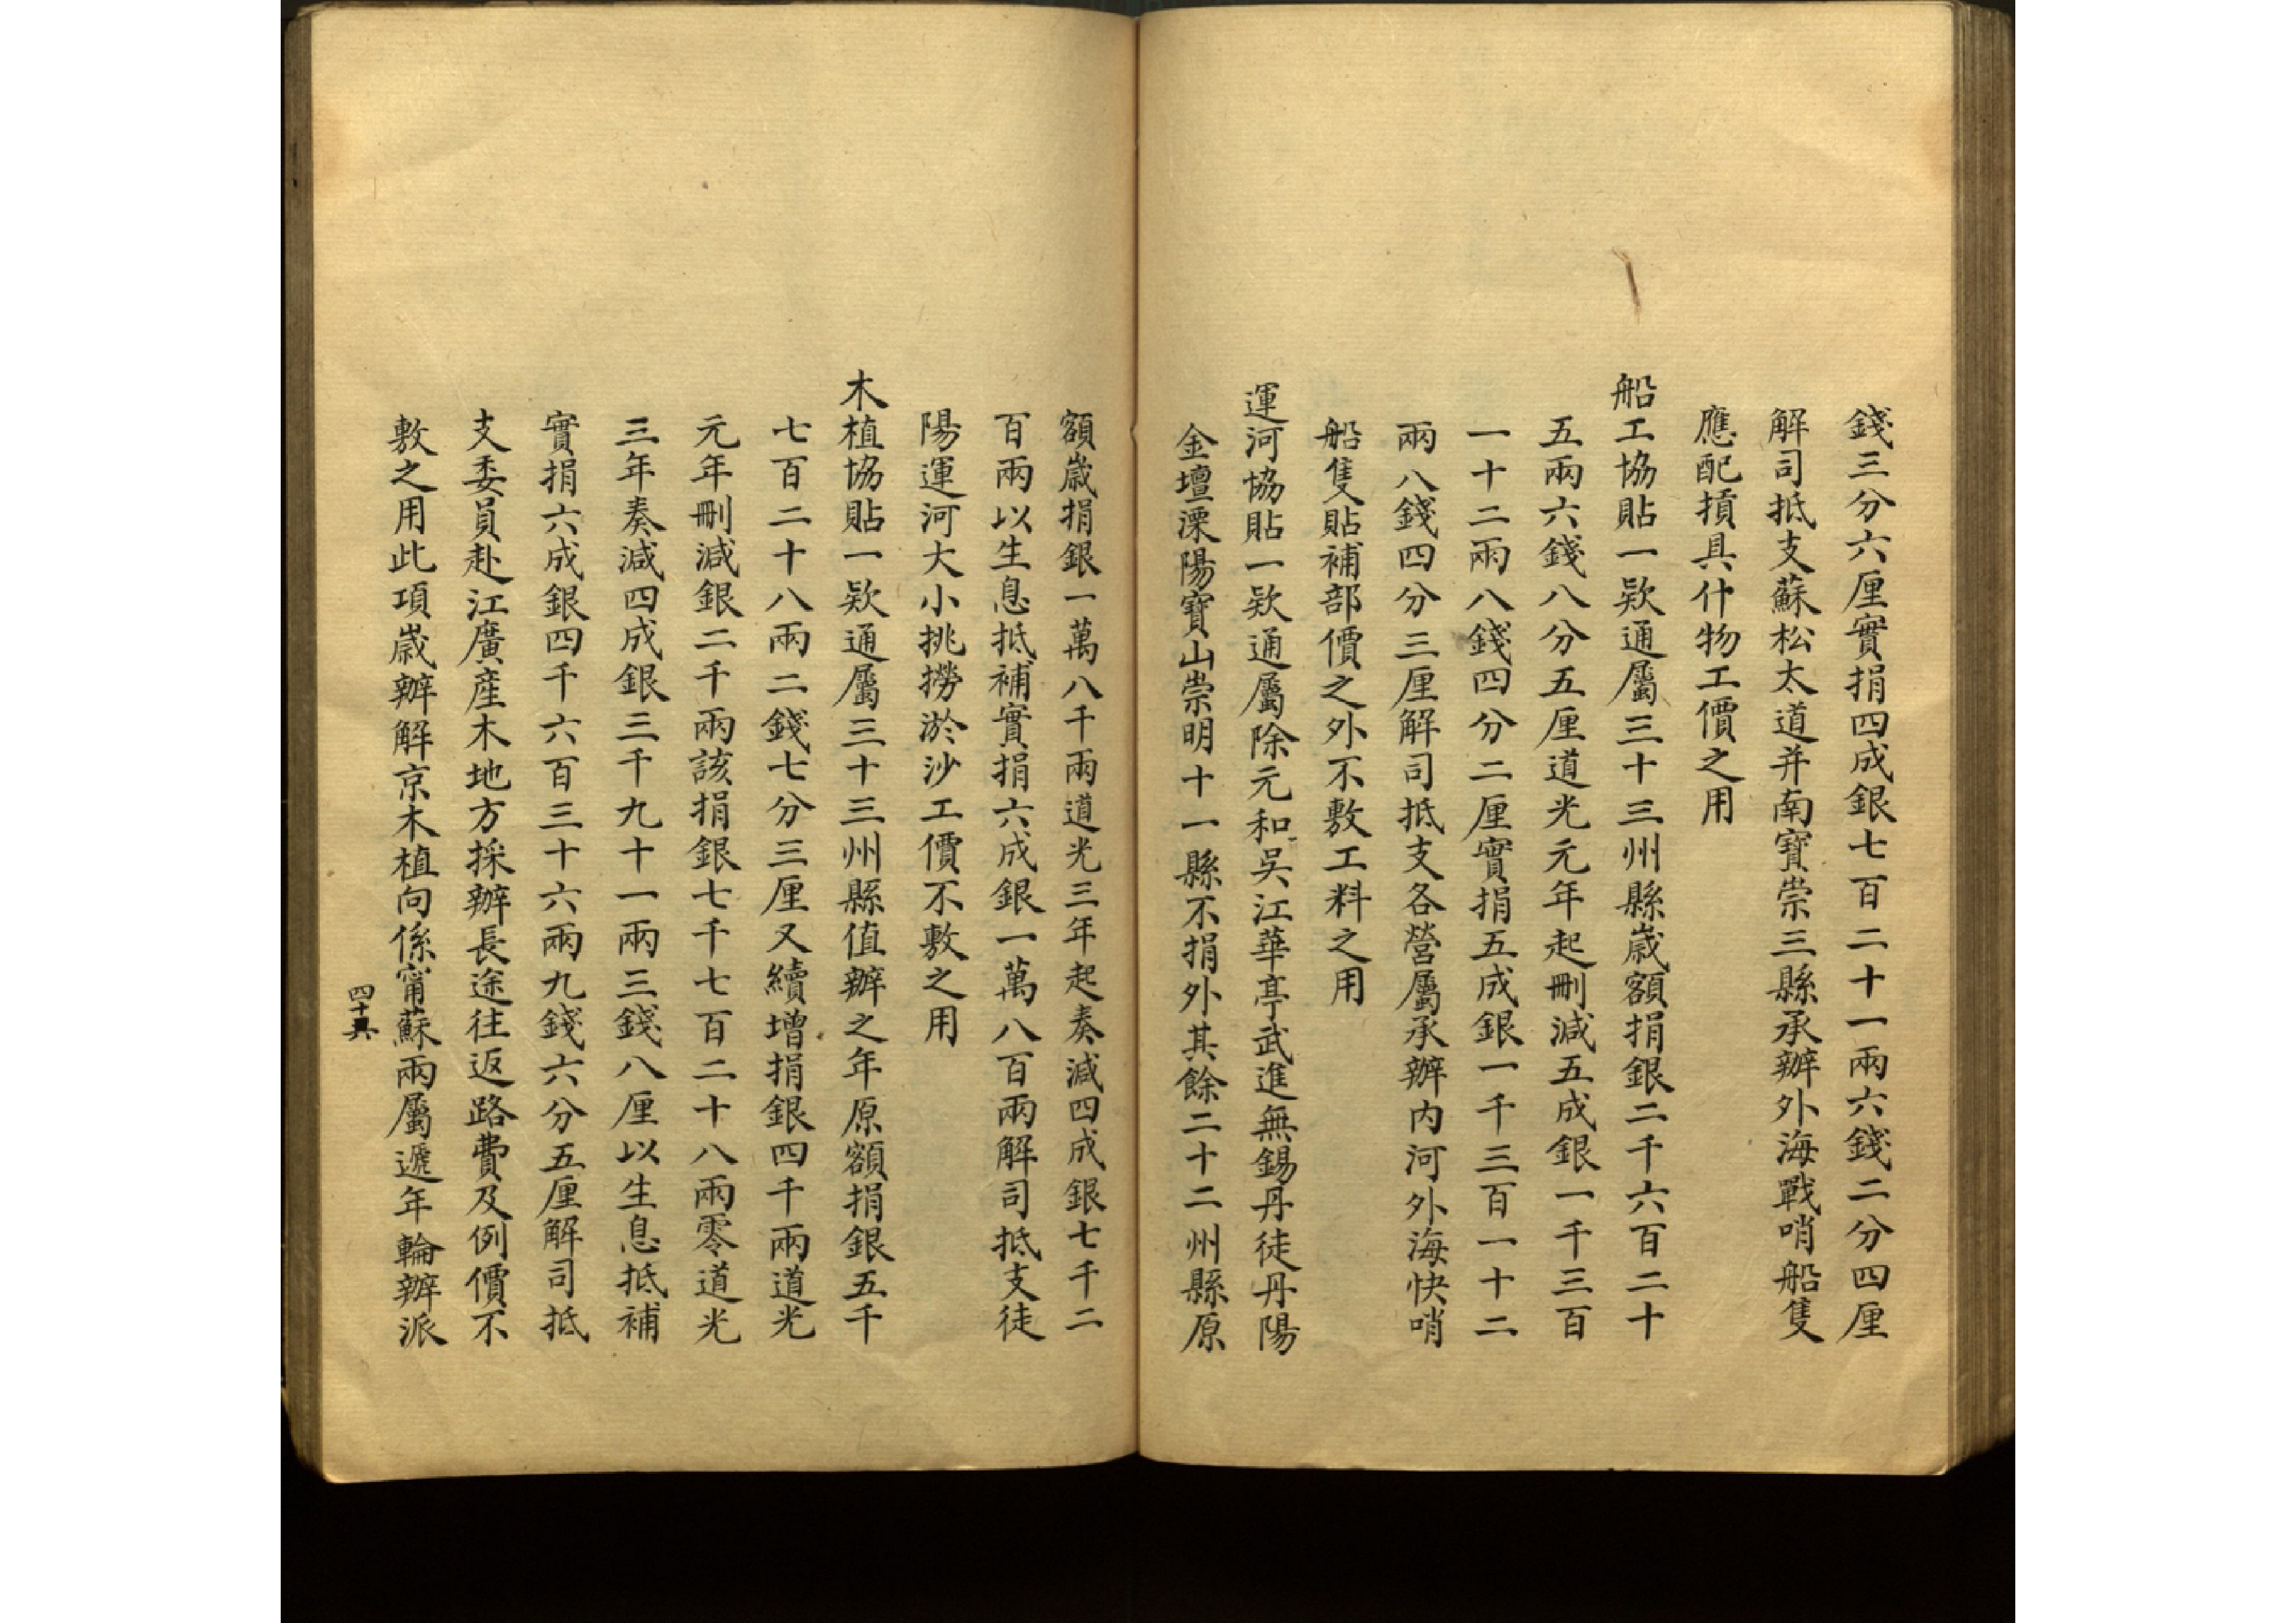 錢三分六厘實捐四成銀七百二十一兩六錢二分四厘
解司抵支蘇松太道并南寶崇三縣承辦外海戰哨船隻
應配損具什物工價之用
船工協貼一欵通屬三十三州縣歲額捐銀二千六百二十
五兩六錢八分五厘道光元年起刪減五成銀一千三百
一十二兩八錢四分二厘實捐五成銀一千三百一十二
兩八錢四分三厘解司抵支各營屬承辦内河外海快哨
船隻貼補部價之外不敷工料之用
運河協貼一欵通屬除元和吳江華亭武進無錫丹徒丹陽
金壇溧陽寶山崇明十一縣不捐外其餘二十二州縣原
額歲捐銀一萬八千兩道光三年起奏減四成銀七千二
百兩以生息抵補實捐六成銀一萬八百兩解司抵支徒
陽運河大小挑撈淤沙工價不敷之用
木植協貼一欵通屬三十三州縣值辦之年原額捐銀五千
七百二十八兩二錢七分三厘又續增捐銀四千兩道光
元年刪減銀二千兩該捐銀七千七百二十八兩零道光
三年奏減四成銀三千九十一兩三錢八厘以生息抵補
實捐六成銀四千六百三十六兩九錢六分五厘解司抵
支委員赴江廣産木地方採辦長途往返路費及例價不
敷之用此項歲辦解京木植向係甯蘇兩屬遞年輪辦派
四十